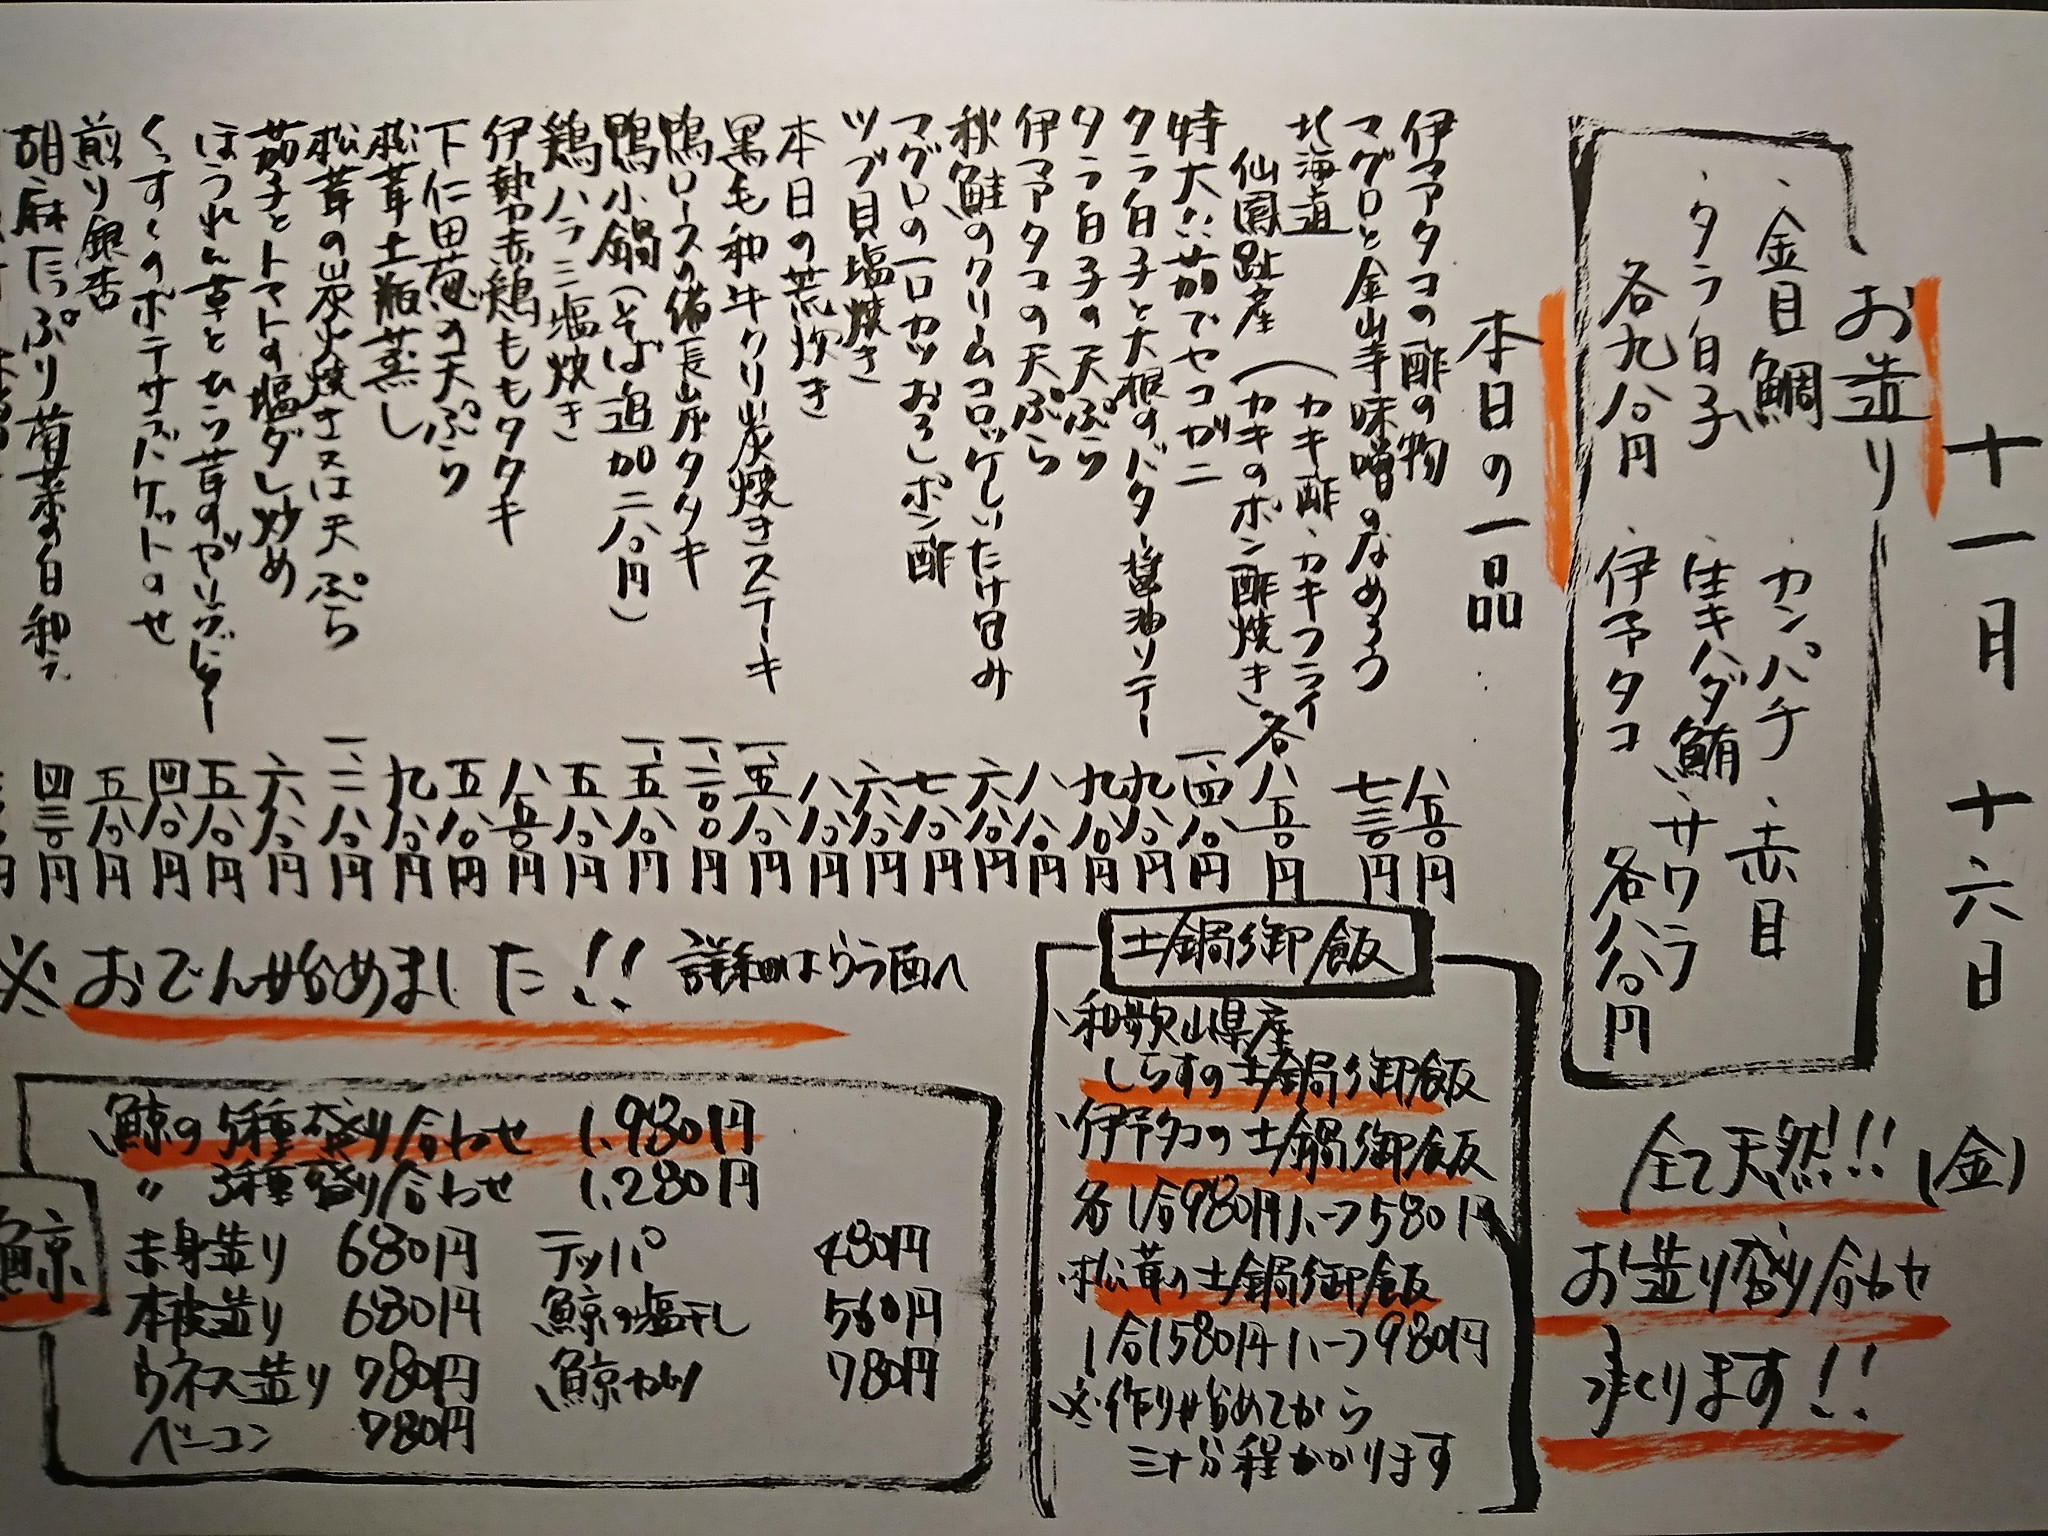 十一月 十六日 (金)
お造り
・金目鯛 ・カンパチ ・赤目
・タラ白子 ・生キハダ鮪 ・サワラ
各九八〇円 ・伊予タコ 各八八〇円
全て天然!!
お造り盛り合わせ
承ります!!
本日の一品
伊予タコの酢の物 八五〇円
マグロと金山寺味噌のなめろう 七三〇円
北海道 (カキ酢・カキフライ
仙鳳趾産 (カキのポン酢焼き 各八五〇円
特大!!茹でヤコガニ 一、四八〇円
タラ白子と大根のバター醤油ソテー 九八〇円
タラ白子の天ぷら 九八〇円
伊予タコの天ぷら 八八〇円
秋鮭のクリームコロッケしいたけ包み 六八〇円
マグロの一口カツおろしポン酢 七八〇円
ツブ貝塩焼き 六八〇円
本日の荒炊き 八八〇円
黒毛和牛クリ炭焼きステーキ 一、五八〇円
鴨ロースの備長炭タタキ 一、二〇〇円
鴨小鍋(そば追加二八〇円) 一、五八〇円
鶏ハラミ塩焼き 五八〇円
伊勢赤鶏ももタタキ 八五〇円
下仁田葱の天ぷら 五八〇円
松茸土瓶蒸し 九八〇円
松茸の炭火焼き又は天ぷら 一、二八〇円
茄子とトマトの塩ダレ炒め 六八〇円
ほうれん草とひら茸の 五八〇円
くんすくのポテサラバケットのせ 四八〇円
煎り銀杏 五八〇円
胡麻たっぷり菊菜の白和え 四三〇円
土鍋御飯
・和歌山県産
しらすの土鍋御飯
・伊予タコの土鍋御飯
各1合980円ハーフ580円
・松茸の土鍋御飯
1合1580円ハーフ980円
※作り始めてから
三十分程かかります
※おでん始めました!! 詳細はうら面へ
鯨
鯨の5種盛り合わせ 1,980円
〃 3種盛り合わせ 1,280円
赤身造り 680円 テッパ 480円
本皮造り 680円 鯨の塩干し 560円
ウネス造り 780円 鯨カツ 780円
ベーコン 780円